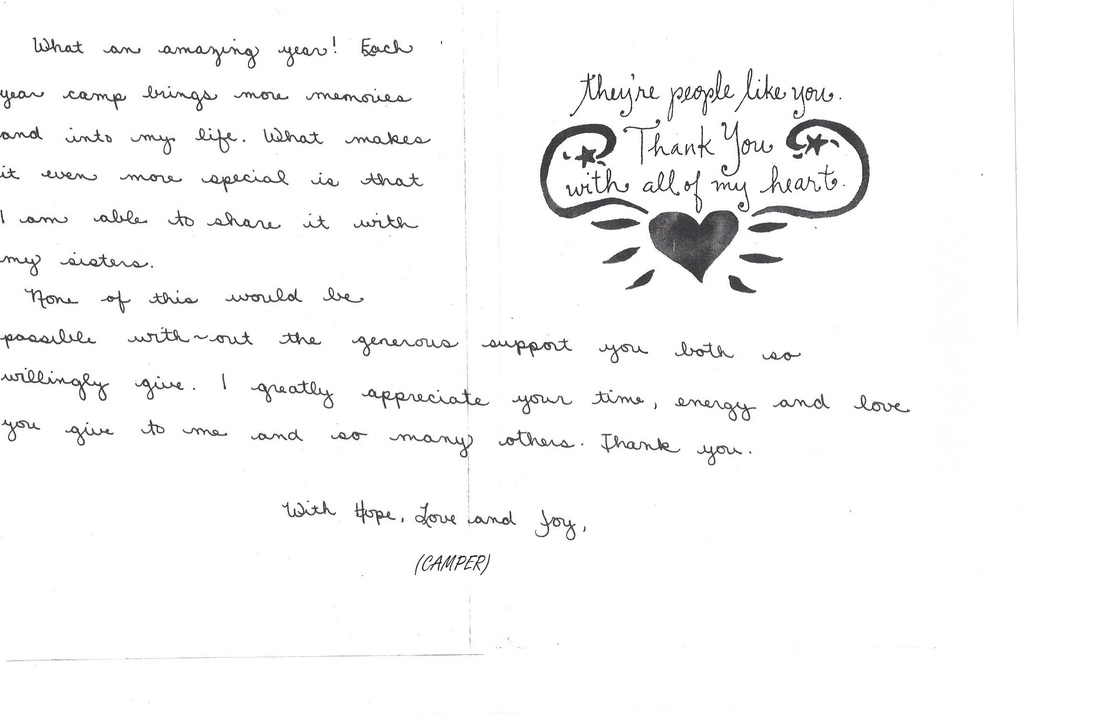 What an amazing year! Each
year camp brings more memories
and into my life. What makes
it even more special is that
I am able to share it with
my sisters.
None of this would be
possible with~out the generous support you both so
willingly give. I greatly appreciate your time, energy and love
you give to me and so many others. Thank you.
With Hope, Love and Joy,
(CAMPER)
they're people like you.
Thank You
with all of my heart.